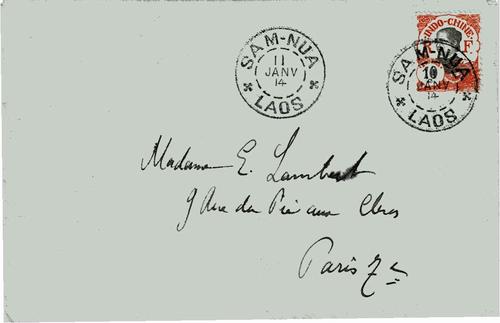 SAM-NUA
11
JANV
14
LAOS
INDO-CHINE
R F
SAM-NUA
10
JANV
14
LAOS
Madame E. Lambert
9 Rue du Pré aux Clercs
Paris 7e